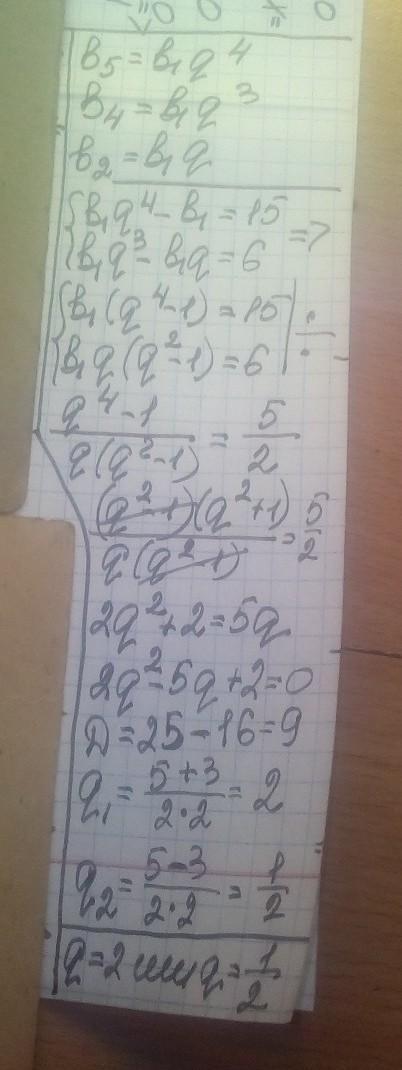 b₅ = b₁q⁴
b₄ = b₁q³
b₂ = b₁q
{b₁q⁴ - b₁ = 15
{b₁q³ - b₁q = 6 =>
{b₁(q⁴-1) = 15 | :
{b₁q(q²-1) = 6 |
(q⁴-1)/(q(q²-1)) = 5/2
((q²-1)(q²+1))/(q(q²-1)) = 5/2
2q²+2=5q
2q²-5q+2=0
D=25-16=9
q₁ = (5+3)/(2·2) = 2
q₂ = (5-3)/(2·2) = 1/2
q=2 или q=1/2